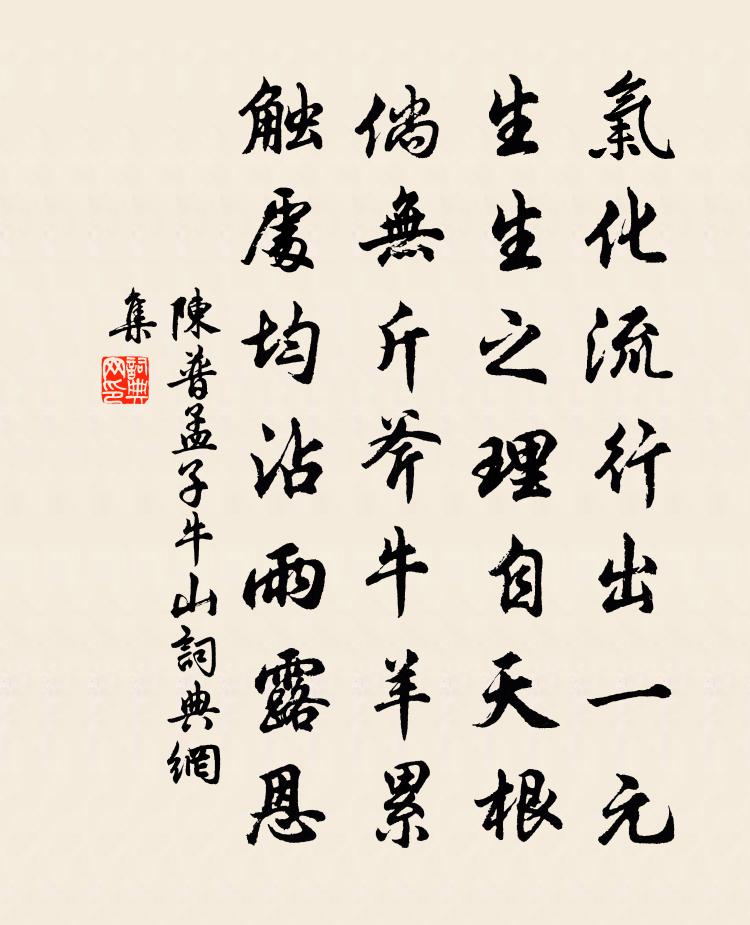 氣化流行出一元
生生之理自天根
倘無斤斧牛羊累
触處均沾雨露恩
陳普孟子牛山詞典網
集
詞典网印